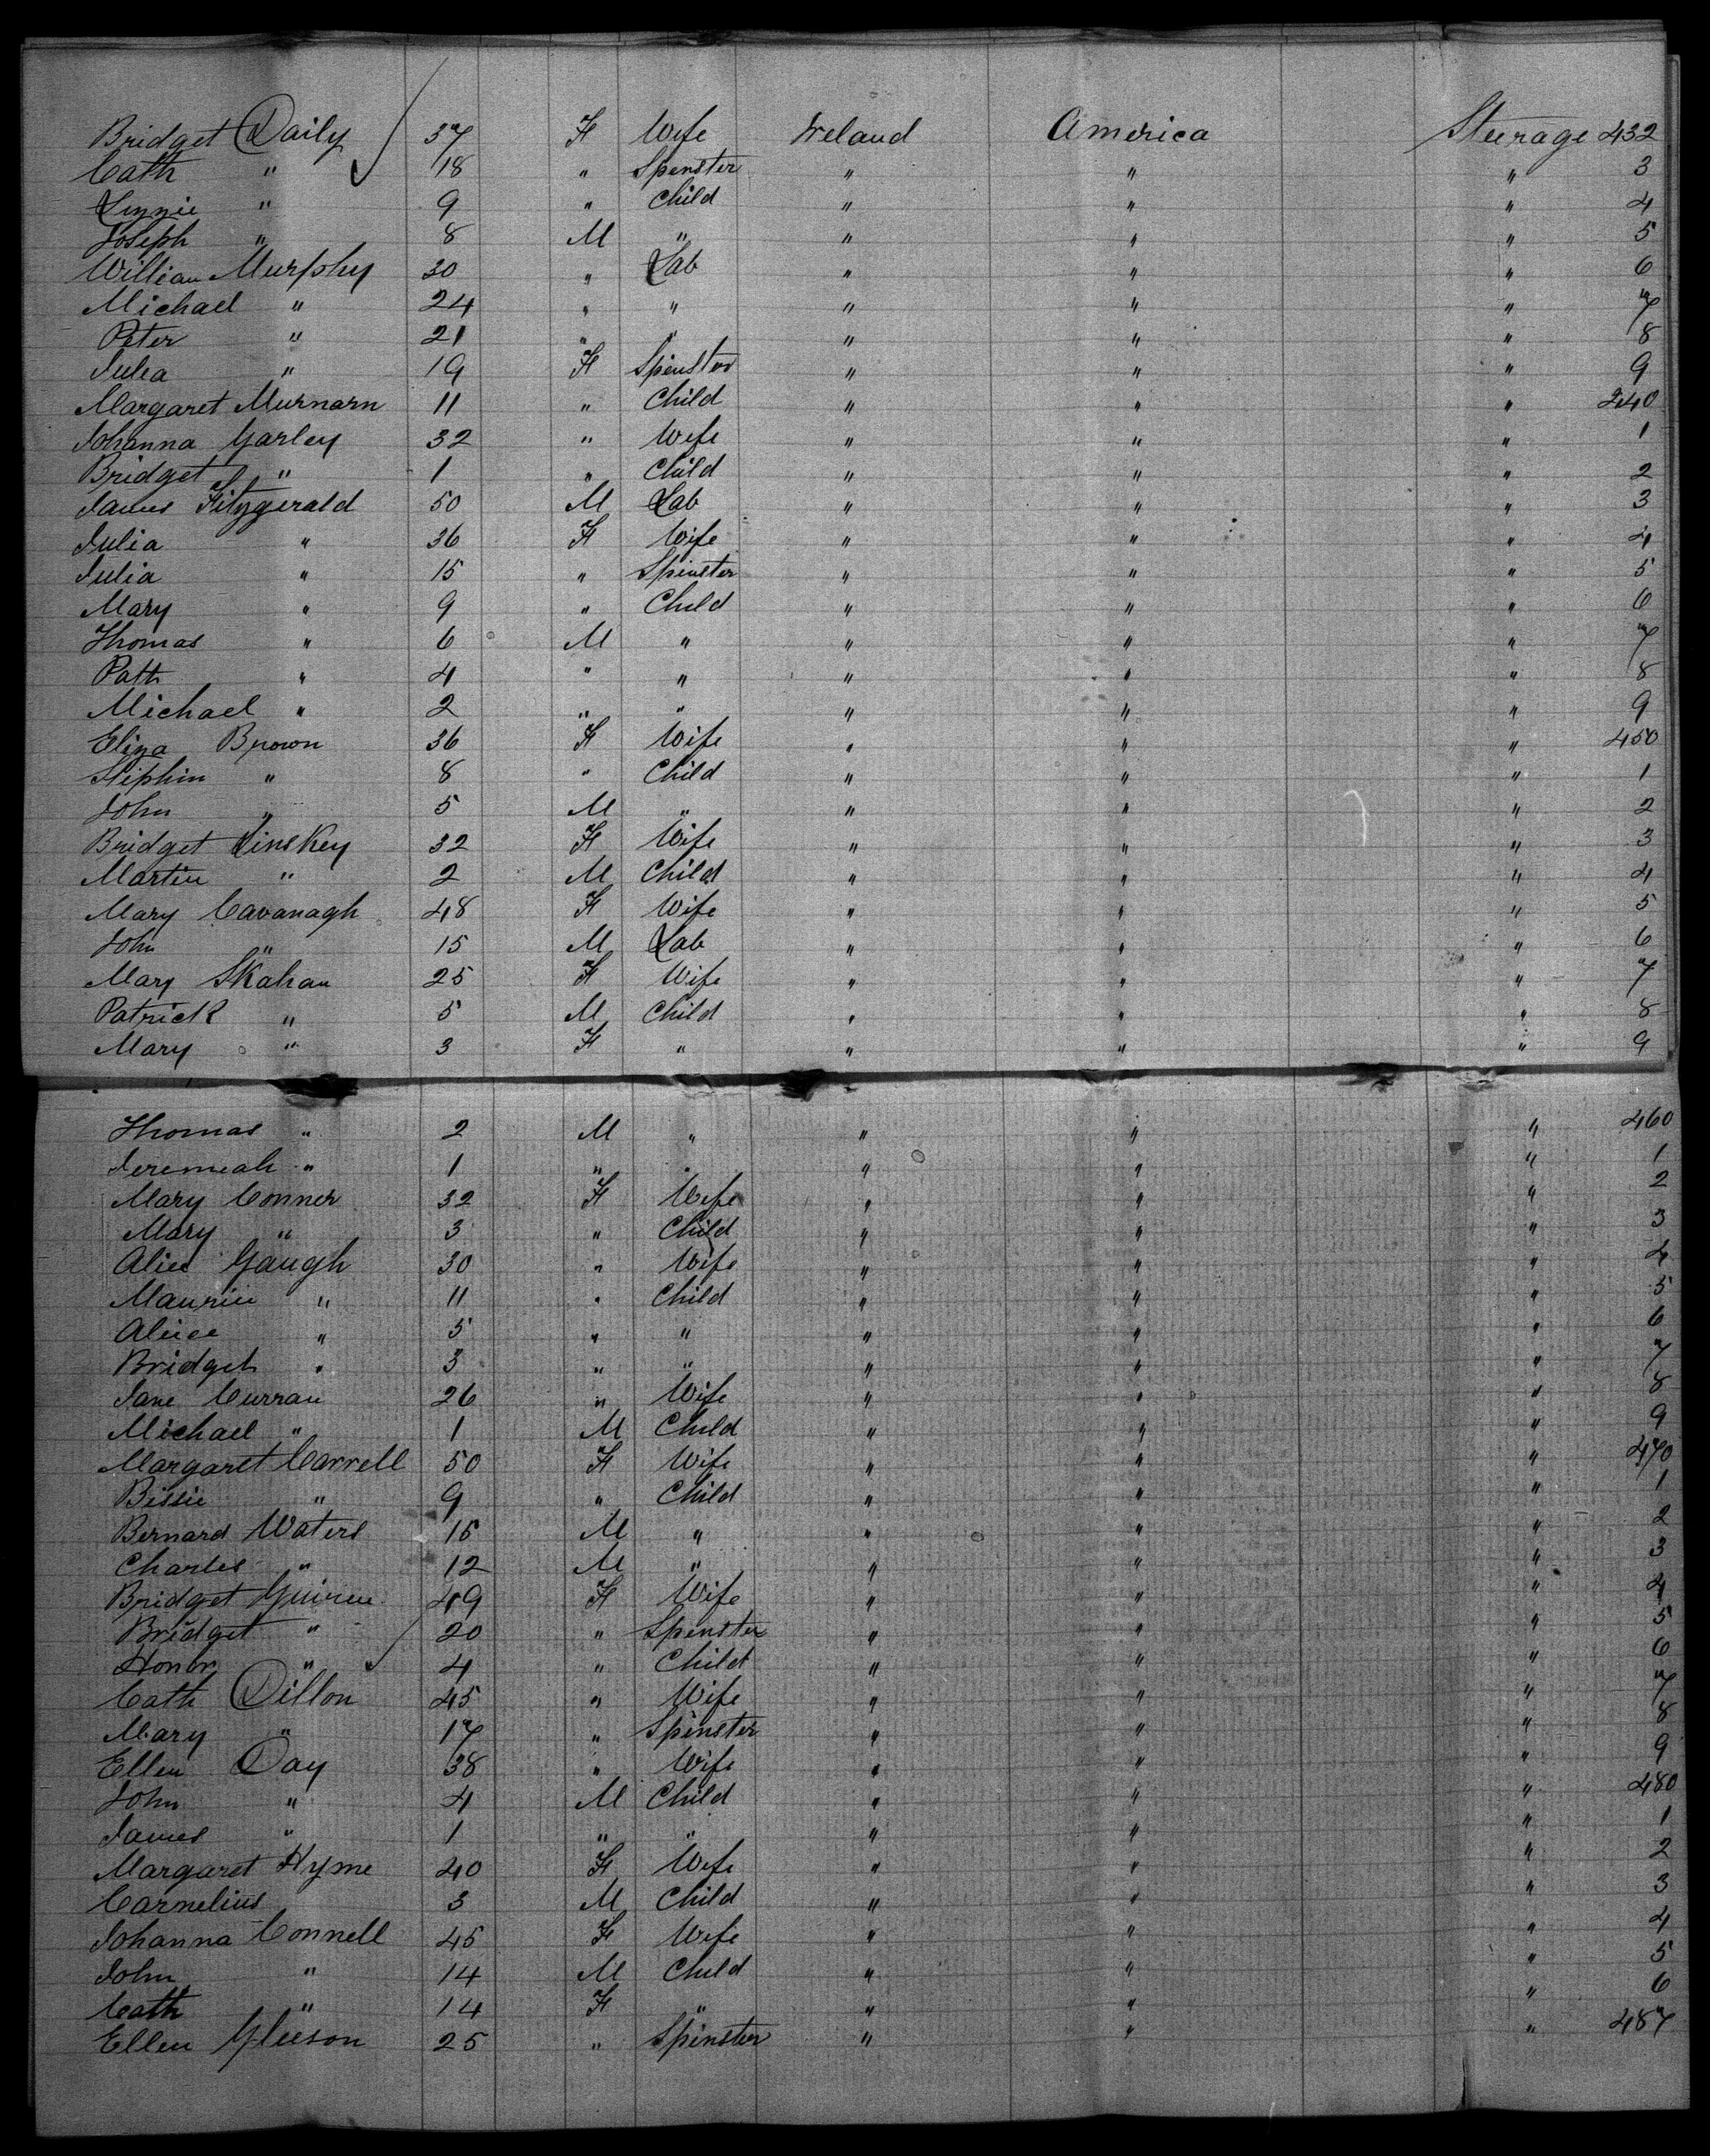 Bridget Daily 37 F Wife Ireland America Steerage 432
Cath " 18 " Spenster " " " 3
Lizzie " 9 " Child " " " 4
Joseph " 8 M " " " " 5
William Murphy 30 " Lab " " " 6
Michael " 24 " " " " " 7
Peter " 21 " " " " " 8
Julia " 19 F Spinster " " " 9
Margaret Murnarn 11 " Child " " " 240
Johanna Garley 32 " Wife " " " 1
Bridget " 1 " Child " " " 2
James Fitzgerald 50 M Lab " " " 3
Julia " 36 F Wife " " " 4
Julia " 15 " Spinster " " " 5
Mary " 9 " Child " " " 6
Thomas " 6 M " " " " 7
Path " 4 " " " " " 8
Michael " 2 " " " " " 9
Eliza Brown 36 F Wife " " " 450
Stephin " 8 " Child " " " 1
John " 5 M " " " " 2
Bridget Linskey 32 F Wife " " " 3
Martin " 2 M Child " " " 4
Mary Cavanagh 48 F Wife " " " 5
John " 15 M Lab " " " 6
Mary Skahan 25 F Wife " " " 7
Patrick " 5 M Child " " " 8
Mary " 3 F " " " " 9
Thomas " 2 M " " " " 460
Jeremiah " 1 " " " " " 1
Mary Conner 32 F Wife " " " 2
Mary " 3 " Child " " " 3
Alice Gaugh 30 " Wife " " " 4
Maurice " 11 " Child " " " 5
Alice " 5 " " " " " 6
Bridget " 3 " " " " " 7
Jane Curran 26 " Wife " " " 8
Michael " 1 M Child " " " 9
Margaret Carrell 50 F Wife " " " 470
Bissie " 9 " Child " " " 1
Bernard Waters 15 M " " " " 2
Charles " 12 M " " " " 3
Bridget Guiren 49 F Wife " " " 4
Bridget " 20 " Spenster " " " 5
Honor " 4 " Child " " " 6
Cath Dillon 45 " Wife " " " 7
Mary " 17 " Spinster " " " 8
Ellen Day 38 " Wife " " " 9
John " 4 M Child " " " 480
James " 1 " " " " " 1
Margaret Hyme 40 F Wife " " " 2
Carnelius " 3 M Child " " " 3
Johanna Connell 45 F Wife " " " 4
John " 14 M Child " " " 5
Cath " 14 F " " " " 6
Ellen Gleeson 25 " Spinster " " " 487